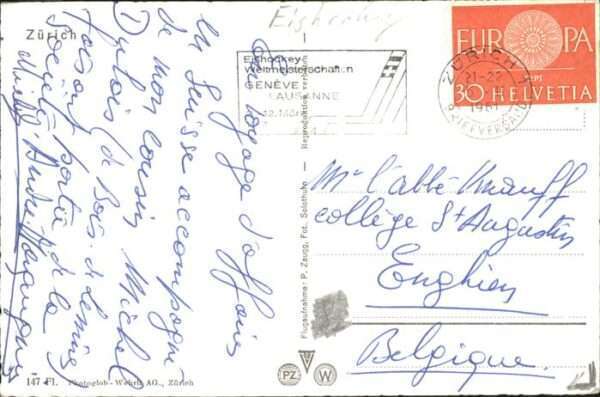 Zürich
Eishockey
Eishockey
Weltmeisterschaften
GENÈVE
LAUSANNE
EUROPA
30 HELVETIA
ZÜRICH
21-22
1961
BRIEFVERSAND
En voyage d'affaires
en Suisse accompagné
de mon cousin Michel
Dubois (de Bois-de-Leming)
faisant partie de la
Société
André
Mr l'abbé Knauff
collège St Augustin
Enghien
Belgique
Flugaufnahme: P. Zaugg, Fot. Solothurn - Reproduktion verboten
147 Fl. Photoglob-Wehrli AG., Zürich
PZ W